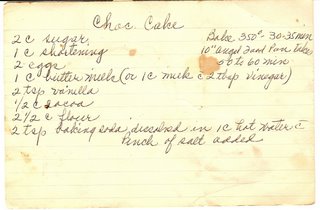 Choc Cake
Bake 350° - 30-35 min
10" angel food Pan takes
50 to 60 min
2 c sugar
1 c shortening
2 eggs
1 c butter milk (or 1 c milk c̄ 2 tbsp vinegar)
2 tsp vanilla
1/2 c cocoa
2 1/2 c flour
2 tsp baking soda dissolved in 1 c hot water c̄
Pinch of salt added